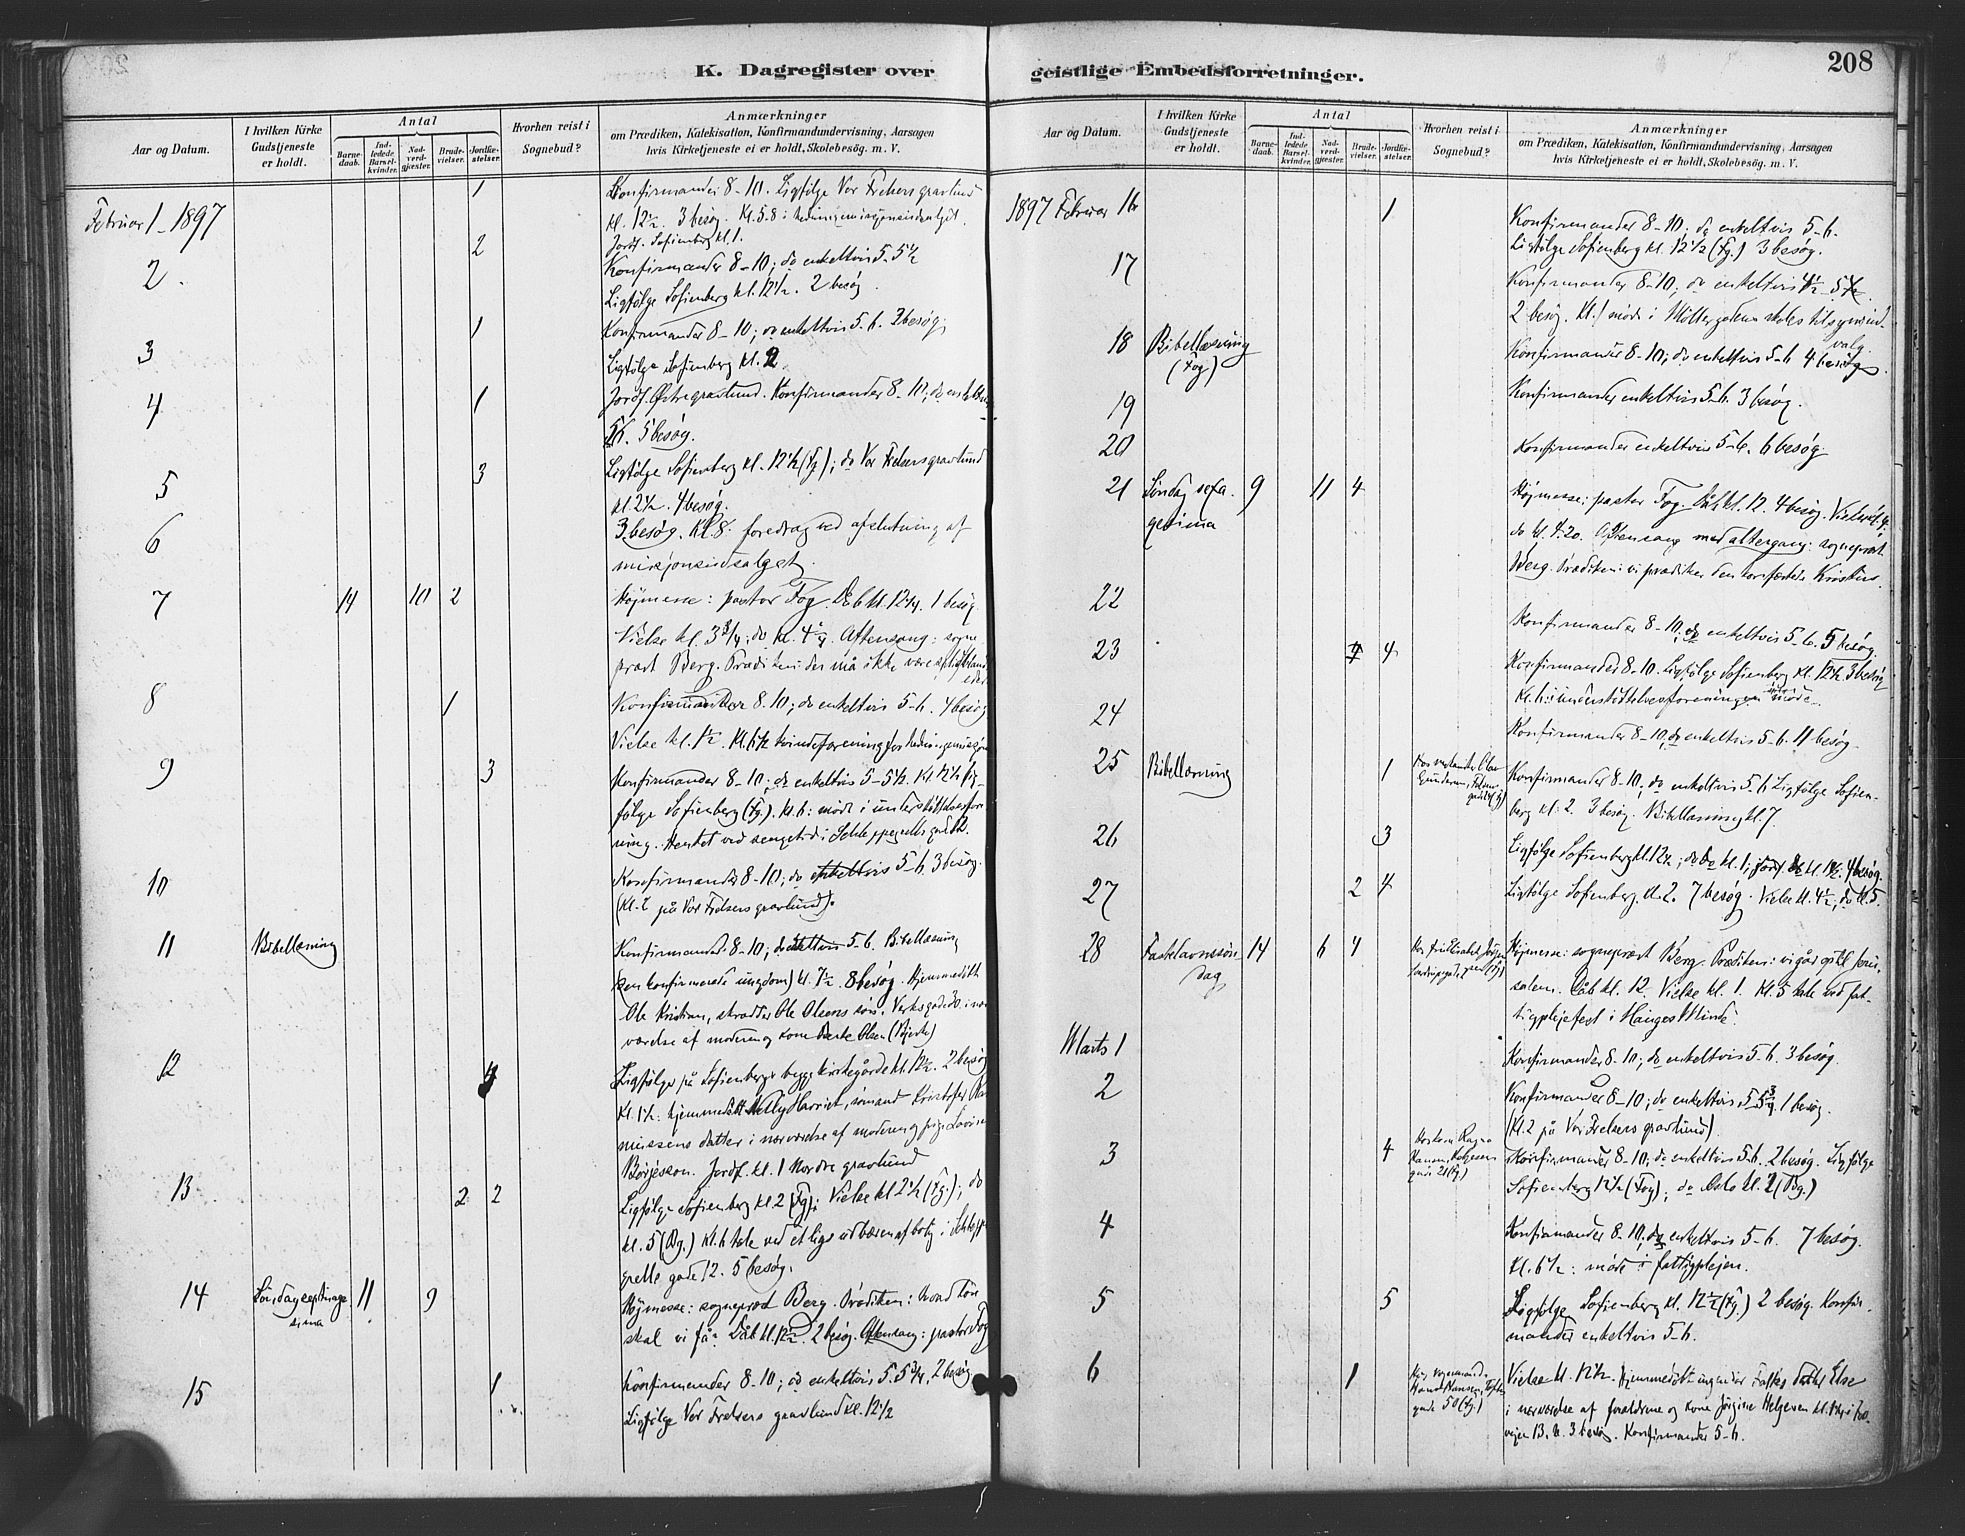 K. Dagregister over
Aar og Datum.
I hvilken Kirke Gudstjeneste er holdt.
Antal
Barnedaab.
Indledede Barselkvinder.
Nadverdgjester.
Brudevielser.
Jordfæstelser.
Hvorhen reist i Sognebud?
Anmærkninger
om Prædiken, Katekisation, Konfirmandundervisning, Aarsagen
hvis Kirketjeneste ei er holdt, Skolebesög. m. V.
Februar 1 - 1897
1
Konfirmander 8-10. Ligfølge Vor Frelsers gravlund
kl. 12½. 3 besøg. Kl. 5-8 i
Jordf. Sofienberg kl. 1.
2
2
Konfirmander 8-10; do enkeltvis 5-5½
Ligfølge Sofienberg kl. 12½. 2 besøg.
3
1
Konfirmander 8-10; do enkeltvis 5-6. 3 besøg.
Ligfølge Sofienberg kl. 2
4
1
Jordf. Østre gravlund. Konfirmander 8-10; do enkeltvis
5-6. 5 besøg.
5
3
Ligfølge Sofienberg kl. 12½ (Fg); do Vor Frelsers gravlund
kl. 2½. 4 besøg.
6
3 besøg. Kl. 8. foredrag ved afslutning af
misjonsudsalget.
7
14 10 2
Højmesse: pastor Fog. Dåb kl. 12¼. 1 besøg.
Vielse kl. 3¾; do kl. 4¼. Aftensang: sogne-
præst Berg. Prædiken: der må ikke være
8
1
Konfirmander 8-10; do enkeltvis 5-6. 4 besøg
Vielse kl. 1½. Kl. 6½ kvindeforening for
9
3
Konfirmander 8-10; do enkeltvis 5-5½. Kl 12½ lig-
følge Sofienberg (Fg.). Kl. 6: møde i understøttelsesfore-
ning. Hentet ved sengetid i Schleppegrells gade 12.
10
Konfirmander 8-10; do enkeltvis 5-6. 3 besøg.
(Kl. 2 på Vor Frelsers gravlund).
11
Bibellæsning
Konfirmander 8-10; do enkeltvis 5-6. Bibellæsning
(den konfirmerede ungdom) kl. 7½. 8 besøg. Hjemmedøbt
Ole Kristian, skrædder Ole Olsens søn, Verksgade 30. i nær-
værelse af moderen og kone Olsen
12
4
Ligfølge på Sofienbergs begge kirkegårde kl. 12½. 2 besøg
Kl. 1½. hjemmedøbt Nelly Harriet, sømand Kristofer
datter i nærværelse af moderen og pige Lovise
Börjesson. Jordf. kl. 1 Nordre gravlund
13
2 2
Ligfølge Sofienberg kl. 2 (Fg); Vielse kl 2½ (Fg.); do
kl. 5 (Bg.) Kl. 6 tale ved et ligs udbæren af bolig i Schleppe-
grells gade 12. 5 besøg.
14
Søndag septuage
sima
11 9
Højmesse: sogneprest Berg. Prædiken: hvad løn
skal vi få? Dåb kl. 12½. 2 besøg. Aftensang: pastor Fog
15
1
Konfirmander 8-10; do enkeltvis 5-5¾, 2 besøg
Ligfølge Vor Frelsers gravlund kl. 12½
geistlige Embedsforretninger.
208
Aar og Datum.
I hvilken Kirke Gudstjeneste er holdt.
Antal
Barnedaab.
Indledede Barselkvinder.
Nadverdgjester.
Brudevielser.
Jordfæstelser.
Hvorhen reist i Sognebud?
Anmærkninger
om Prædiken, Katekisation, Konfirmandundervisning, Aarsagen
hvis Kirketjeneste ei er holdt, Skolebesög. m. V.
1897 Februar 16
1
Konfirmander 8-10; do enkeltvis 5-6.
Ligfølge Sofienberg kl. 12½ (Fg.) 3 besøg.
17
Konfirmander 8-10; do enkeltvis 4½-5½.
2 besøg. Kl. 1 møde i Møllergadens skoles tilsynsud-
valg.
18
Bibellæsning
(Fog)
Konfirmander 8-10; do enkeltvis 5-6 4 besøg.
19
Konfirmander enkeltvis 5-6. 3 besøg.
20
Konfirmander enkeltvis 5-6. 6 besøg.
21
Søndag sexa-
gesima
9 11 4
Højmesse: pastor Fog. Dåb kl. 12. 4 besøg.
do kl. 4.20. Aftensang med altergang: sogneprest
Berg. Prædiken: vi prædiker den korsfæstede Kristus.
22
Konfirmander 8-10, do enkeltvis 5-6. 5 besøg.
23
4 4
Konfirmander 8-10. Ligfølge Sofienberg kl. 12½. 3 besøg
Kl. 6: i understøttelsesforeningen møde.
24
Konfirmander 8-10, do enkeltvis 5-6. 11 besøg.
25
Bibellæsning
1
Konfirmander 8-10, do enkeltvis 5-6 Ligfølge Sofien-
berg kl. 2. 3 besøg. Bibellæsning kl. 7.
26
3
Ligfølge Sofienberg kl. 12½; do do kl. 1; 4 besøg.
27
2 4
Ligfølge Sofienberg kl. 2. 7 besøg. Vielse kl. 4½, do kl. 5.
28
Fastelavnssøn-
dag
14 6 4
Højmesse: sogneprest Berg. Prædiken: vi går op til Jeru-
salem. Dåb kl. 12. Vielse kl. 1. Kl. 5 tale ved fat-
tigplejefest i Hauges Minde.
Marts 1
Konfirmander 8-10; do enkeltvis 5-6. 3 besøg.
2
Konfirmander 8-10; do enkeltvis 5-5¾. 1 besøg.
(Kl. 2 på Vor Frelsers gravlund).
3
4
Konfirmander 8-10, do enkeltvis 5-6. 2 besøg. Ligfølge
Sofienberg 12½ (Fog); do Oslo kl. 2 (Bg.)
4
Konfirmander 8-10, do enkeltvis 5-6. 7 besøg.
Kl. 6½: møde i fattigplejen.
5
5
Ligfølge Sofienberg kl. 12½ (Fg.) 2 besøg. Konfir-
mander enkeltvis 5-6.
6
1
Vielse kl. 12½. Hjemmedøbt datter Else
i nærværelse af forældrene og kone Jørgine Helgesen
3 besøg. Konfirmander 5-6.